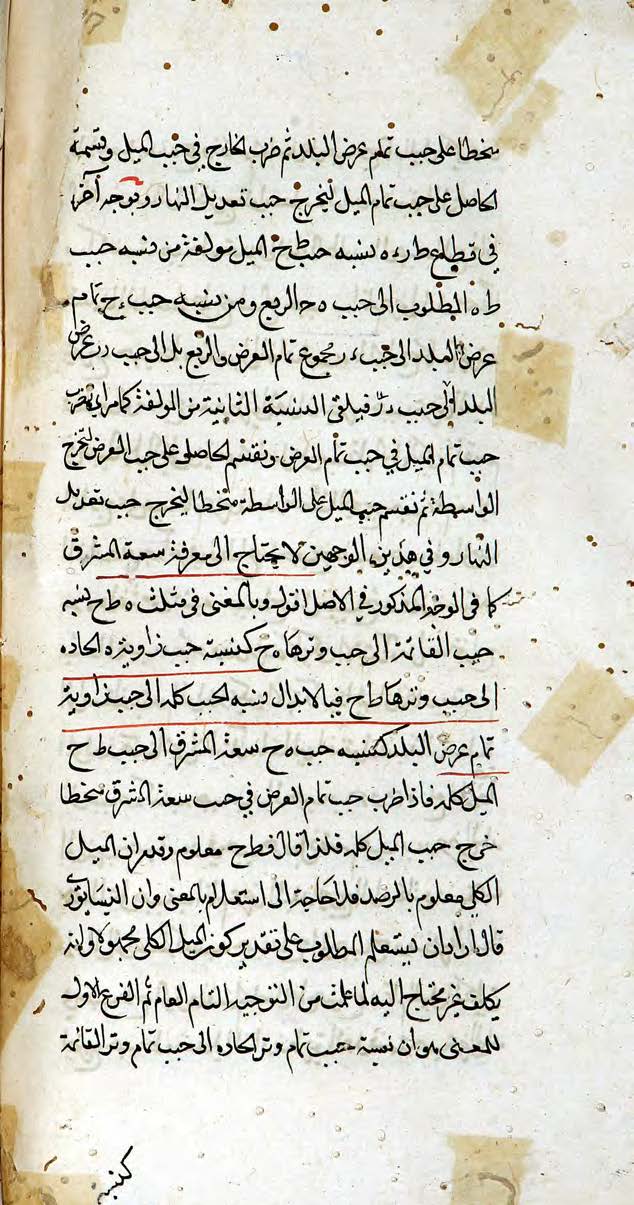 منحطا على جيب تمام عرض البلد ثم ضرب الخارج في جيب الميل وقسمة
الحاصل على جيب تمام الميل ليخرج جيب تعديل النهار وبوجه آخر
في قطاع طرءه نسبة جيب طح الميل مولفة من نسبة جيب
طه المطلوب الى جيب هح الربع ومن نسبة جيب ءح تمام
عرض البلد الى جيب ءر مجموع تمام العرض والربع بل الى جيب در عرض
البلد الى جيب فيلقى النسبة الثانية من المولفة كما مر اي نضرب
جيب تمام الميل في جيب تمام العرض ونقسم الحاصل على جيب العرض ليخرج
الواسطة ثم نقسم جيب الميل على الواسطة منحطا ليخرج جيب تعديل
النهار وفي هذين الوجهين لا يحتاج الى معرفة سعة المشرق
كما في الوجه المذكور في الاصل اقول وبالمغنى في مثلث ه ط ح نسبة
جيب القائمة الى جيب وترها ه ح كنسبة جيب زاوية ه الحادة
الى جيب وترها ط ح فبالابدال نسبة الجيب كله الى جيب زاوية
تمام عرض البلد كنسبة جيب ه ح سعة المشرق الى جيب ط ح
الميل كله فاذا ضرب جيب تمام العرض في جيب سعة المشرق منحطا
خرج جيب الميل كله فلذا قال فطح معلوم وقد مر ان الميل
الكلي معلوم بالرصد فلا حاجة الى استعلام بالمغنى وان النيسابوري
قال اراد ان يستعلم المطلوب على تقدير كون الميل الكلي مجهولا وانه
تكلف غير محتاج اليه لما علمت من التوجيه التام العام ثم الفرع الاول
للمغنى هو ان نسبة جيب تمام وتر الحادة الى جيب تمام وتر القائمة
كنسبة